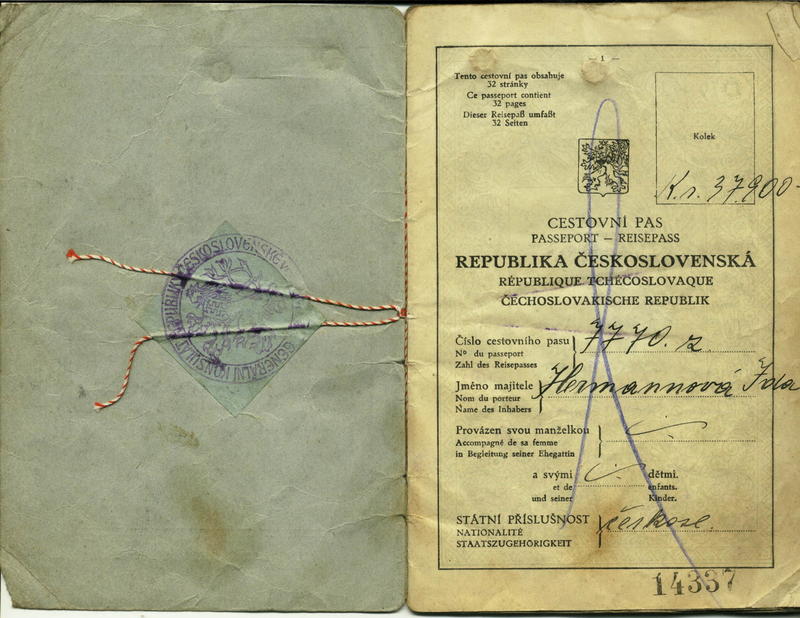 REPUBLIKY ČESKOSLOVENSKÉ V
GENERÁLNÍ KONSULÁT
— 1 —
Tento cestovní pas obsahuje
32 stránky
Ce passeport contient
32 pages
Dieser Reisepaß umfaßt
32 Seiten
Kolek
K. r. 37.900-
CESTOVNÍ PAS
PASSEPORT — REISEPASS
REPUBLIKA ČESKOSLOVENSKÁ
RÉPUBLIQUE TCHÉCOSLOVAQUE
ČECHOSLOVAKISCHE REPUBLIK
Číslo cestovního pasu 7770. z.
Nº du passeport
Zahl des Reisepasses
Jméno majitele Hermannová Ida
Nom du porteur
Name des Inhabers
Provázen svou manželkou
Accompagné de sa femme
in Begleitung seiner Ehegattin
a svými dětmi.
et de enfants.
und seiner Kinder.
STÁTNÍ PŘÍSLUŠNOST českosl.
NATIONALITÉ
STAATSZUGEHÖRIGKEIT
14337